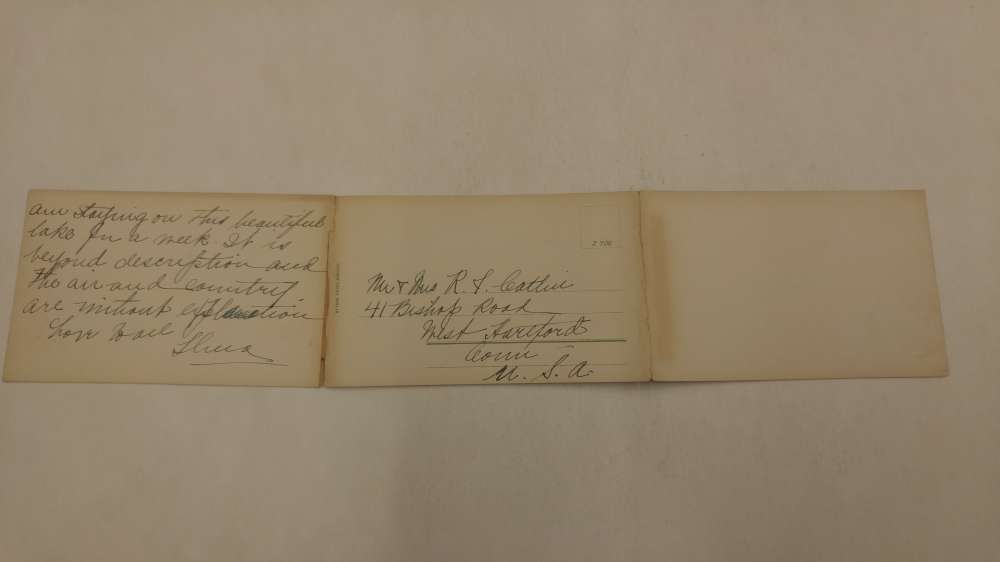 am staying on this beautiful
lake for a week. It is
beyond description and
the air and country
are without explanation
Love to all
Z 706
Mr & Mrs R. S. Catlin
41 Bishop Road
West Hartford
Conn
U. S. A.